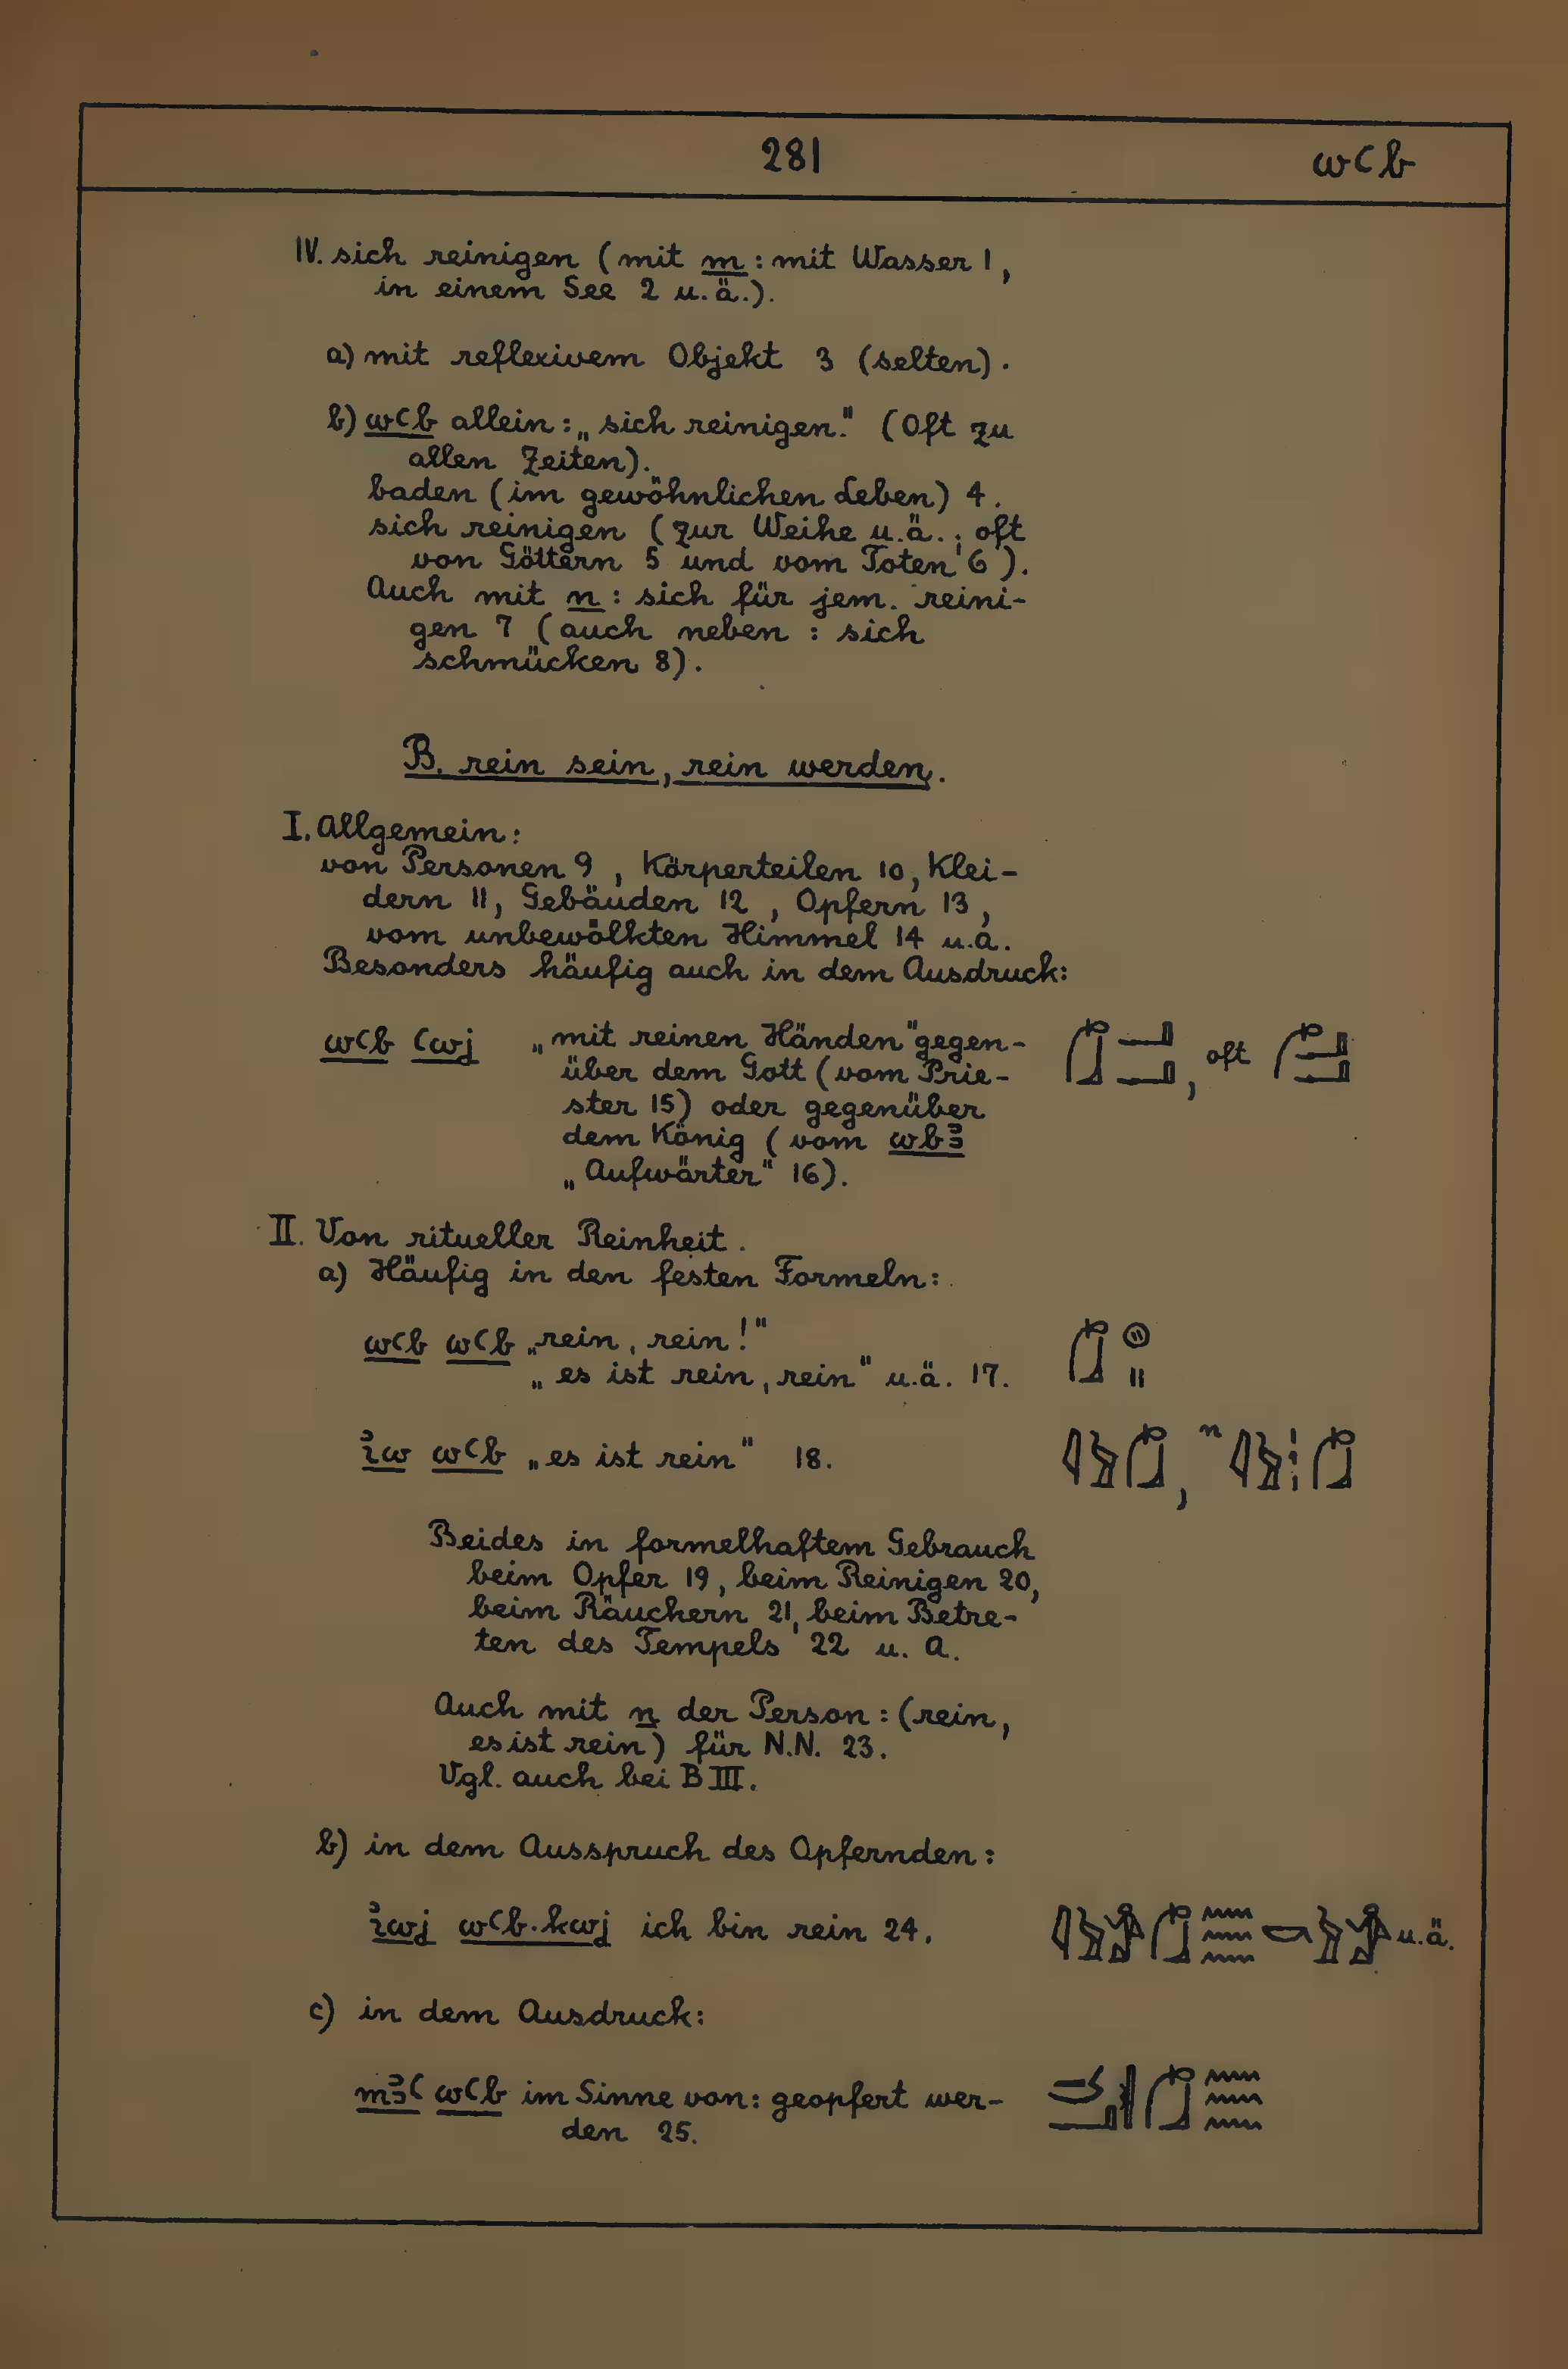 281 wꜥb
IV. sich reinigen (mit m : mit Wasser 1,
in einem See 2 u.ä.).
a) mit reflexivem Objekt 3 (selten).
b) wꜥb allein : „sich reinigen." (Oft zu
allen Zeiten).
baden (im gewöhnlichen Leben) 4.
sich reinigen (zur Weihe u.ä.; oft
von Göttern 5 und vom Toten 6).
Auch mit n : sich für jem. reini-
gen 7 (auch neben : sich
schmücken 8).
B. rein sein, rein werden.
I. Allgemein :
von Personen 9, Körperteilen 10, Klei-
dern 11, Gebäuden 12, Opfern 13,
vom unbewölkten Himmel 14 u.a.
Besonders häufig auch in dem Ausdruck:
wꜥb ꜥwj „mit reinen Händen" gegen- , oft
über dem Gott (vom Prie-
ster 15) oder gegenüber
dem König (vom wbꜣ
„Aufwärter" 16).
II. Von ritueller Reinheit.
a) Häufig in den festen Formeln :
wꜥb wꜥb „rein, rein!"
„es ist rein, rein" u.ä. 17.
ꞽw wꜥb „es ist rein" 18. , n
Beides in formelhaftem Gebrauch
beim Opfer 19, beim Reinigen 20,
beim Räuchern 21, beim Betre-
ten des Tempels 22 u. A.
Auch mit n der Person : (rein,
es ist rein) für N.N. 23.
Vgl. auch bei B III.
b) in dem Ausspruch des Opfernden :
ꞽwj wꜥb.kwj ich bin rein 24. u.ä.
c) in dem Ausdruck:
mꜣꜥ wꜥb im Sinne von : geopfert wer-
den 25.